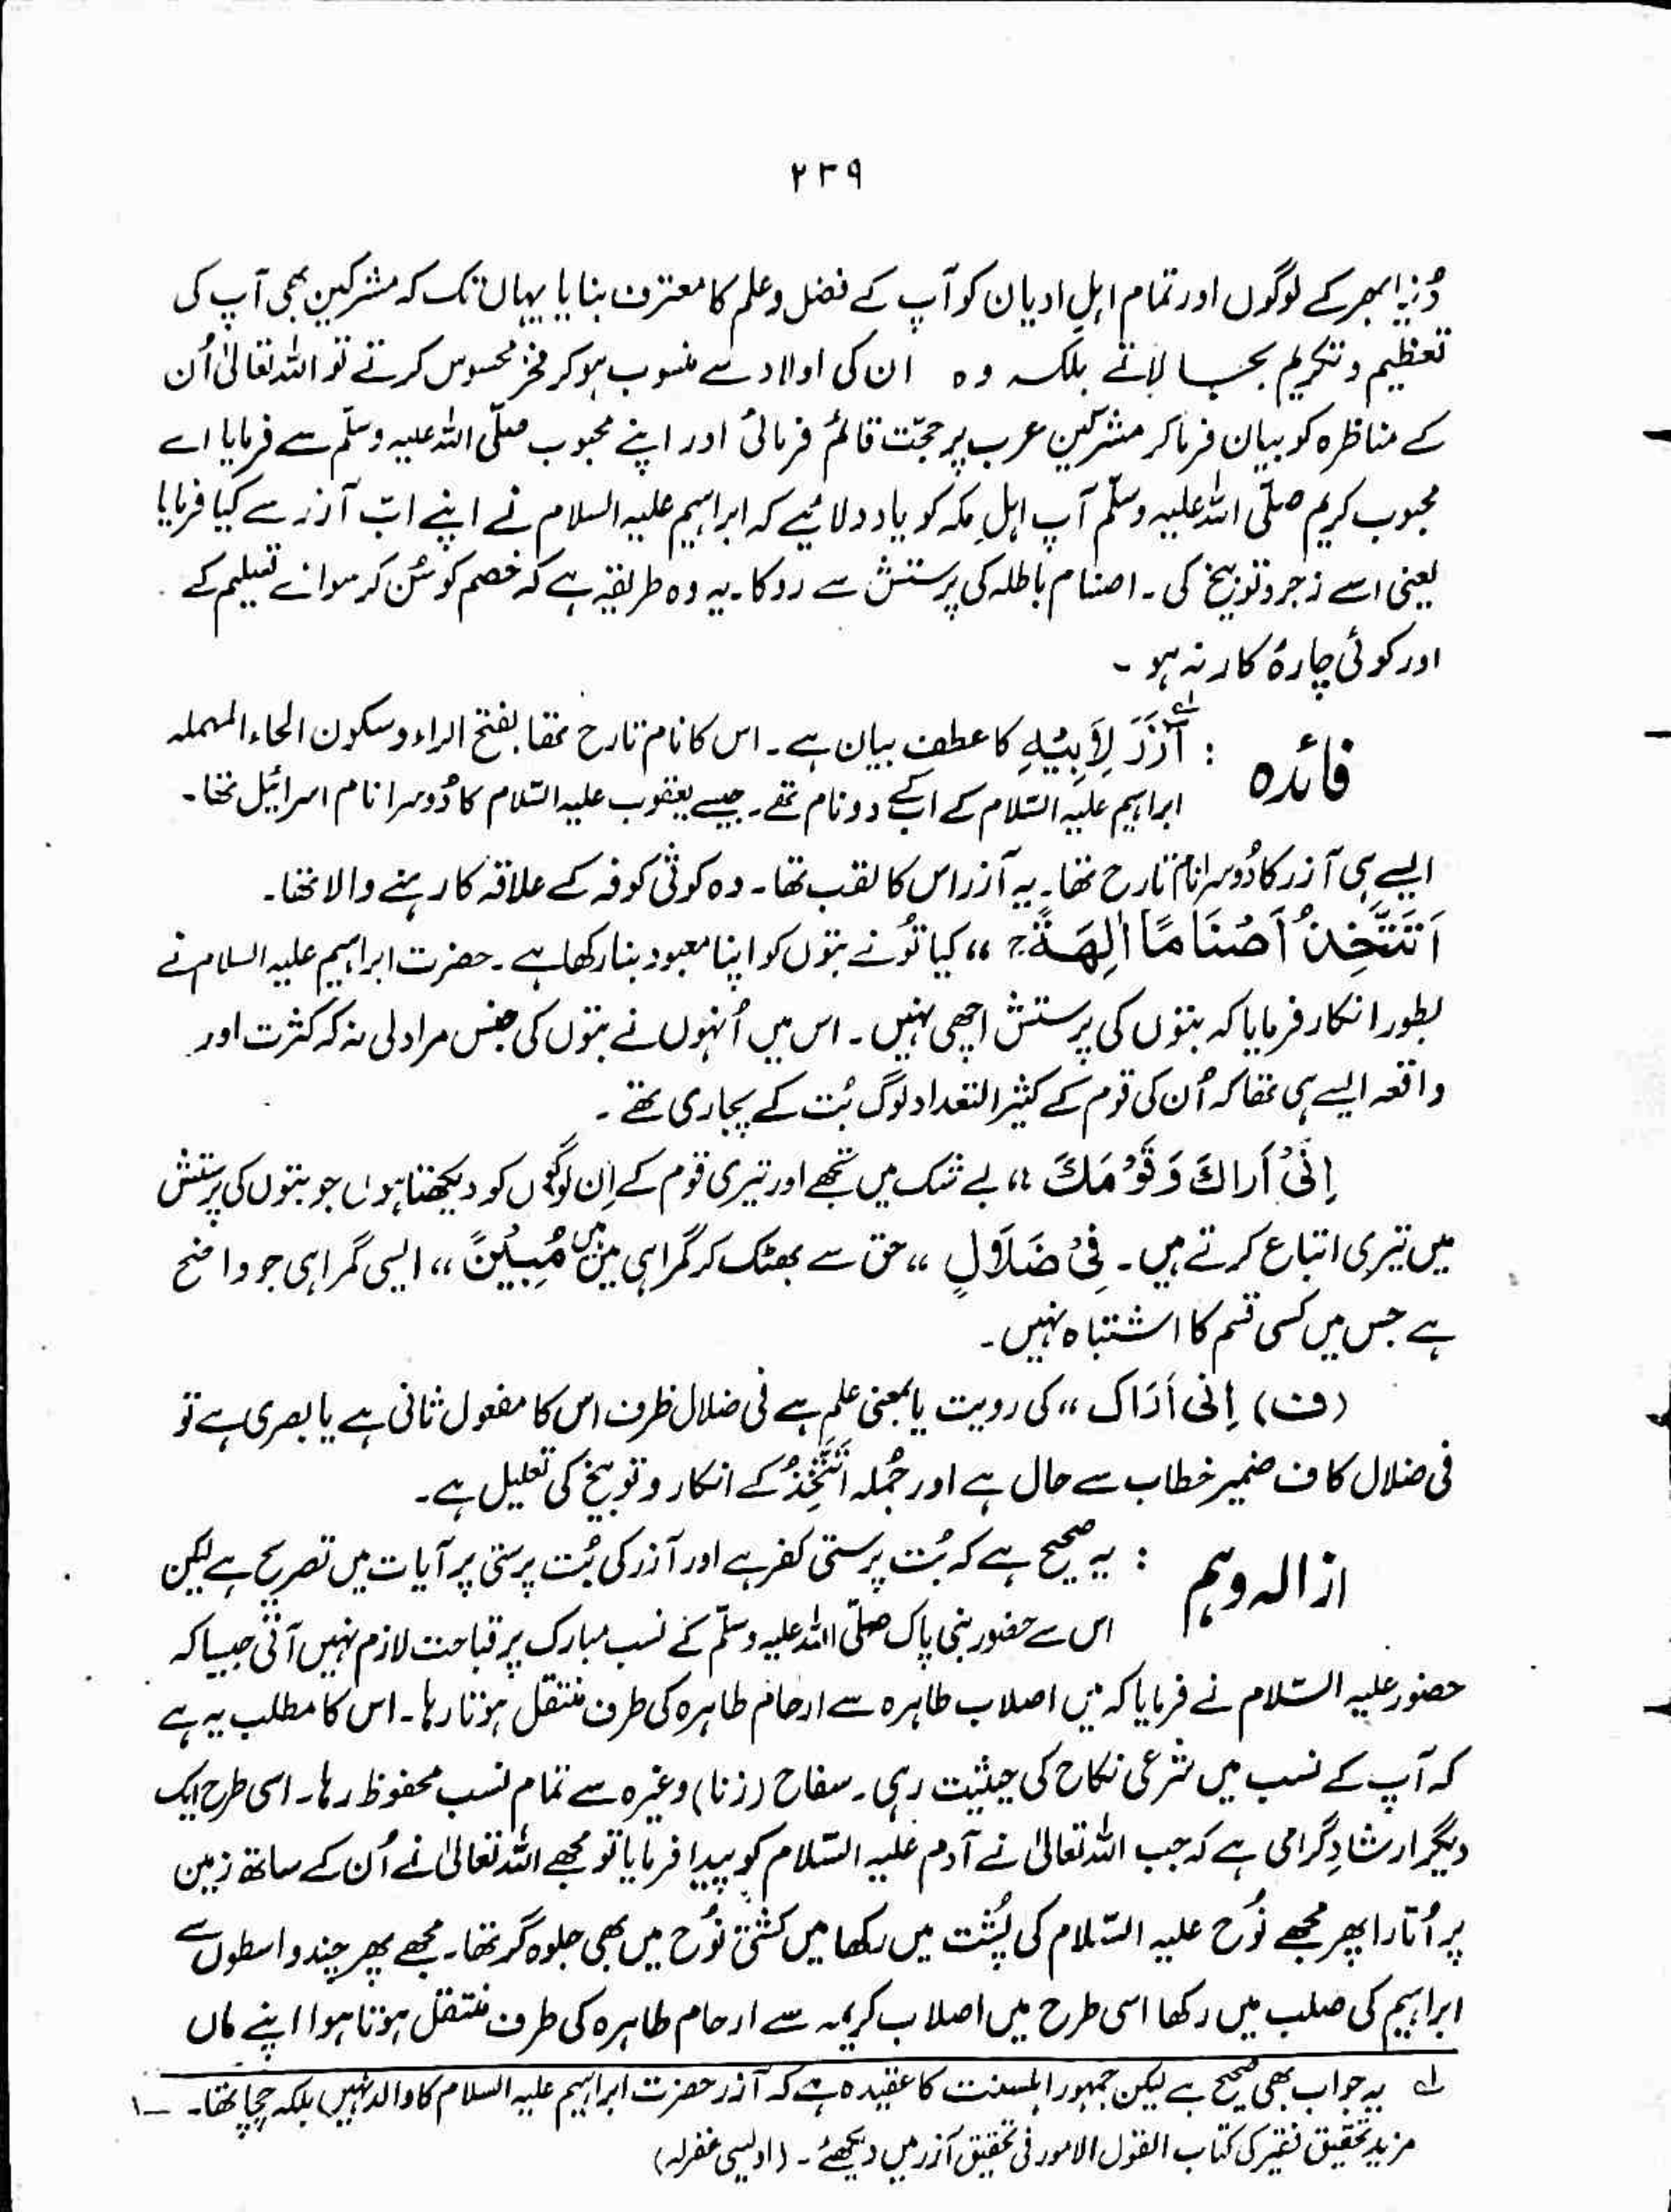 ۲۳۹
دُنیا بھر کے لوگوں اور تمام اہلِ ادیان کو آپ کے فضل و علم کا معترف بنایا یہاں تک کہ مشرکین بھی آپ کی
تعظیم و تکریم بجا لاتے بلکہ وہ ان کی اولاد سے منسوب ہو کر فخر محسوس کرتے تو اللہ تعالیٰ اُن
کے مناظرہ کو بیان فرما کر مشرکینِ عرب پر حجّت قائم فرمائی اور اپنے محبوب صلّی اللہ علیہ وسلّم سے فرمایا اے
محبوب کریم صلّی اللہ علیہ وسلّم آپ اہلِ مکہ کو یاد دلائیے کہ ابراہیم علیہ السلام نے اپنے ابّ آذر سے کیا فرمایا
یعنی اسے زجر و توبیخ کی ۔ اصنام باطلہ کی پرستش سے روکا ۔ یہ وہ طریقہ ہے کہ خصم کو سُن کر سوائے تسلیم کے
اور کوئی چارۂ کار نہ ہو ۔
فائدہ : آزَرَ لِاَبِیْهِ کا عطف بیان ہے ۔ اس کا نام تارح تھا بفتح الراء و سکون الحاء المہملہ
ابراہیم علیہ السّلام کے اب کے دو نام تھے ۔ جیسے یعقوب علیہ السّلام کا دُوسرا نام اسرائیل تھا ۔
ایسے ہی آذر کا دُوسرا نام تارح تھا ۔ یہ آذر اس کا لقب تھا ۔ وہ کوثیٰ کوفہ کے علاقہ کا رہنے والا تھا ۔
اَتَتَّخِذُ اَصْنَامًا اٰلِهَةً ج ،، کیا تُو نے بتوں کو اپنا معبود بنا رکھا ہے ۔ حضرت ابراہیم علیہ السلام نے
بطور انکار فرمایا کہ بتوں کی پرستش اچھی نہیں ۔ اس میں اُنہوں نے بتوں کی جنس مراد لی نہ کہ کثرت اور
واقعہ ایسے ہی تھا کہ اُن کی قوم کے کثیر التعداد لوگ بُت کے پجاری تھے ۔
اِنِّیْ اَرَاكَ وَقَوْمَكَ ،، بے شک میں تجھے اور تیری قوم کے اِن لوگوں کو دیکھتا ہوں جو بتوں کی پرستش
میں تیری اتباع کرتے ہیں ۔ فِیْ ضَلَالٍ ،، حق سے بھٹک کر گمراہی میں ہیں مُبِیْنٍ ،، ایسی گمراہی جو واضح
ہے جس میں کسی قسم کا اشتباہ نہیں ۔
(ف) اِنی اَرَاک ،، کی رویت یا بمعنی علم ہے فی ضلال ظرف اس کا مفعول ثانی ہے یا بصری ہے تو
فی ضلال کاف ضمیر خطاب سے حال ہے اور جُملہ اَتَتَّخِذُ کے انکار و توبیخ کی تعلیل ہے ۔
ازالہ وہم : یہ صحیح ہے کہ بُت پرستی کفر ہے اور آذر کی بُت پرستی پر آیات میں تصریح ہے لیکن
اس سے حضور نبی پاک صلّی اللہ علیہ وسلّم کے نسب مبارک پر قباحت لازم نہیں آتی جیسا کہ
حضور علیہ السّلام نے فرمایا کہ میں اصلاب طاہرہ سے ارحام طاہرہ کی طرف منتقل ہوتا رہا ۔ اس کا مطلب یہ ہے
کہ آپ کے نسب میں شرعی نکاح کی حیثیت رہی ۔ سفاح (زنا) وغیرہ سے تمام نسب محفوظ رہا ۔ اسی طرح ایک
دیگر ارشادِ گرامی ہے کہ جب اللہ تعالیٰ نے آدم علیہ السّلام کو پیدا فرمایا تو مجھے اللہ تعالیٰ نے اُن کے ساتھ زمین
پر اُتارا پھر مجھے نُوح علیہ السّلام کی پُشت میں رکھا میں کشتی نُوح میں بھی جلوہ گر تھا ۔ مجھے پھر چند واسطوں سے
ابراہیم کی صلب میں رکھا اسی طرح میں اصلاب کریمہ سے ارحام طاہرہ کی طرف منتقل ہوتا ہوا اپنے ماں
لے یہ جواب بھی صحیح ہے لیکن جمہور اہلسنت کا عقیدہ ہے کہ آذر حضرت ابراہیم علیہ السلام کا والد نہیں بلکہ چچا تھا ۔ ۱
مزید تحقیق فقیر کی کتاب القول الامور فی تحقیق آزر میں دیکھئے ۔ (اویسی غفرلہ)